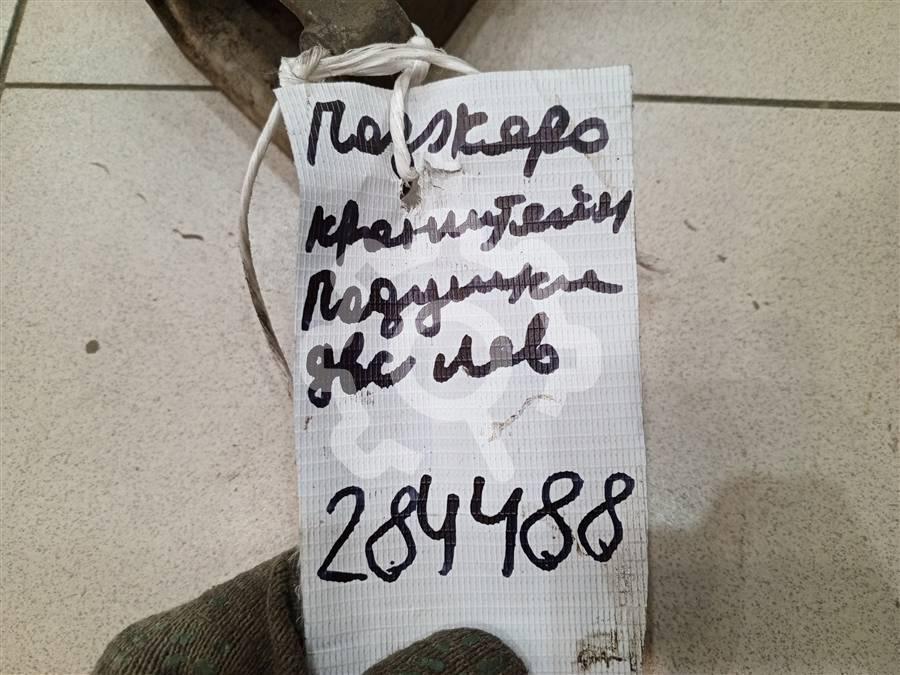 Паджеро
кранштейн
Подушки
двс лев
284488